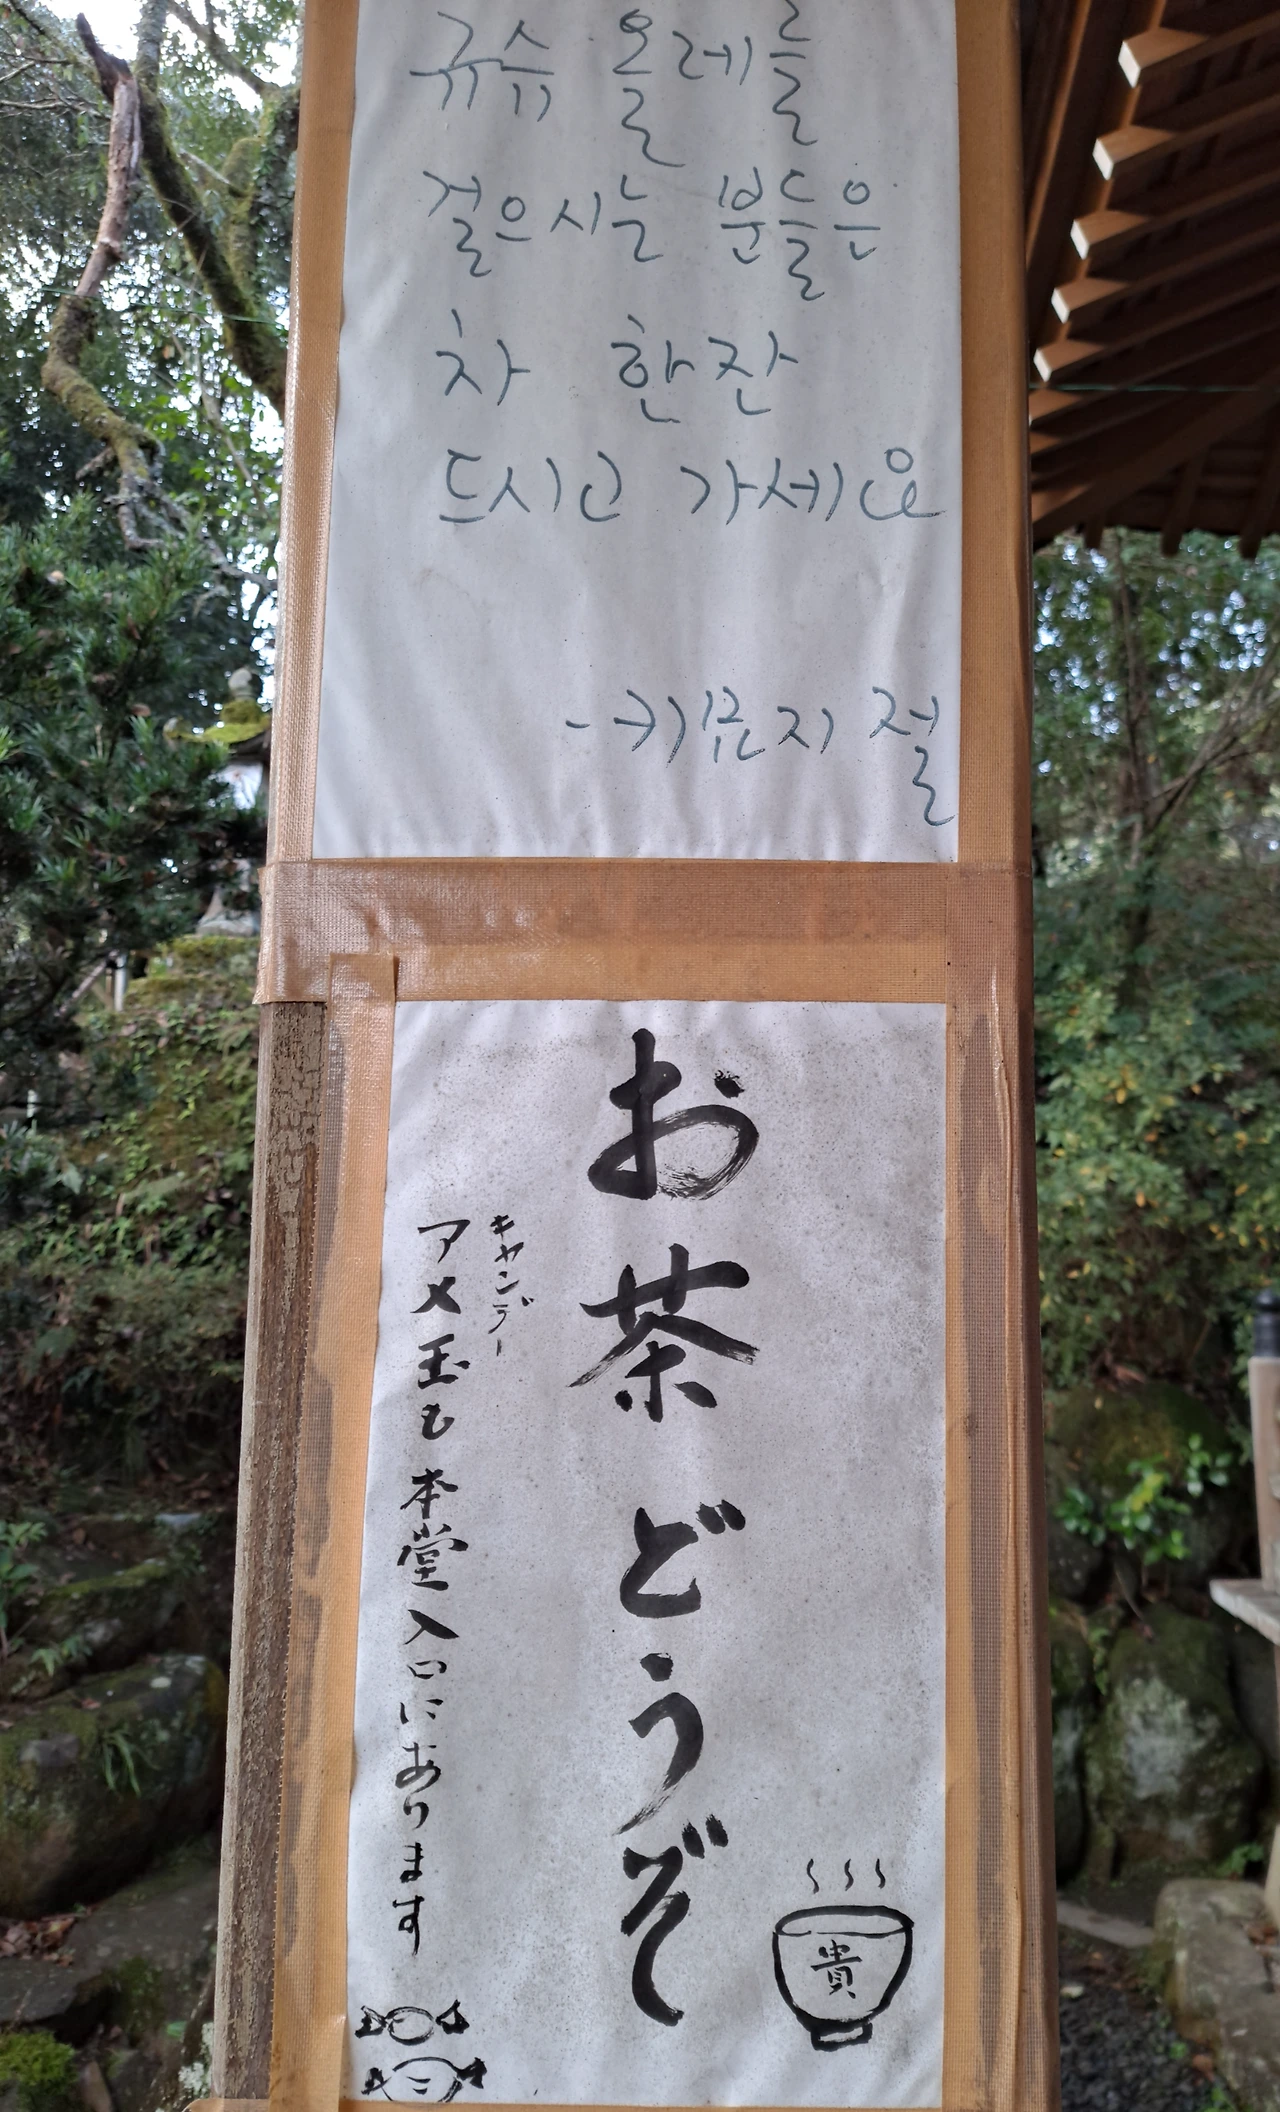 규슈 올레를
걸으시는 분들은
차 한잔
드시고 가세요
-키묜지 절
お茶どうぞ
キャンデー
アメ玉も本堂入口にあります
貴